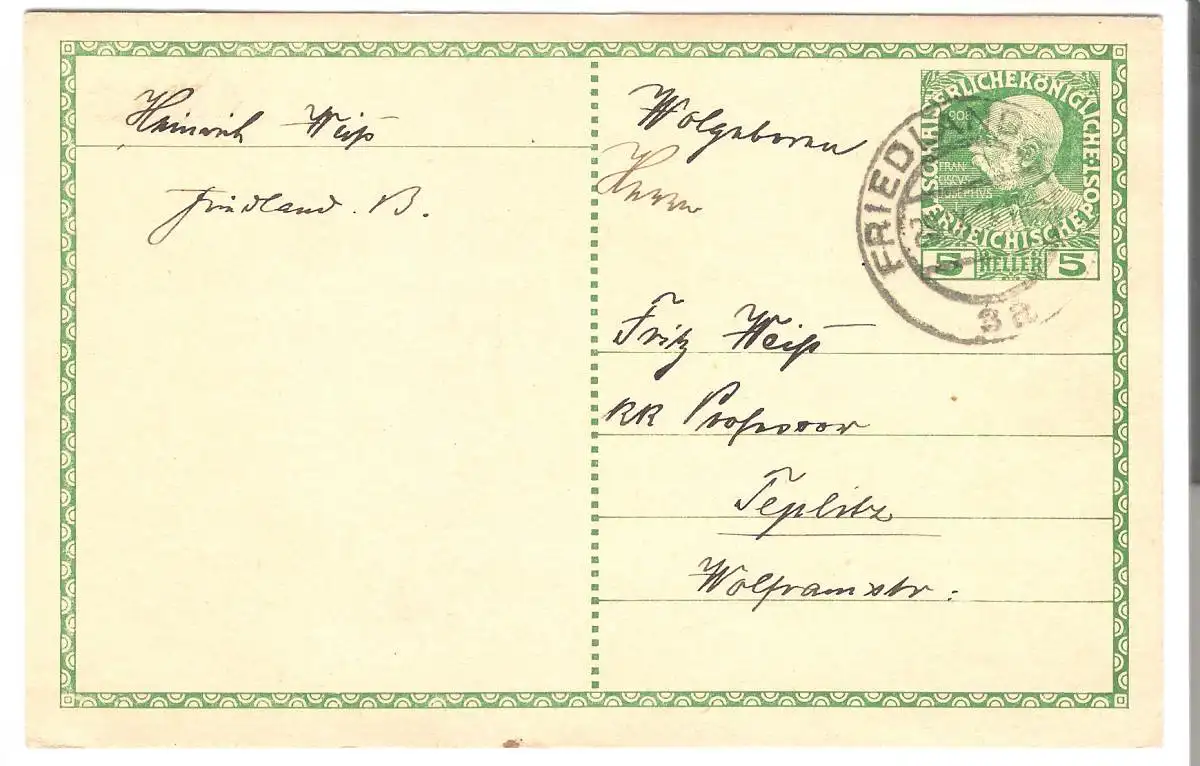 Heinrich Weiß
Friedland. B.
Wolgeboren
Herrn
Fritz Weiß
KK Professor
Teplitz
Wolframstr:
KAISERLICHE KÖNIGLICHE
ÖSTERREICHISCHE POST
5 HELLER 5
FRIEDLAND